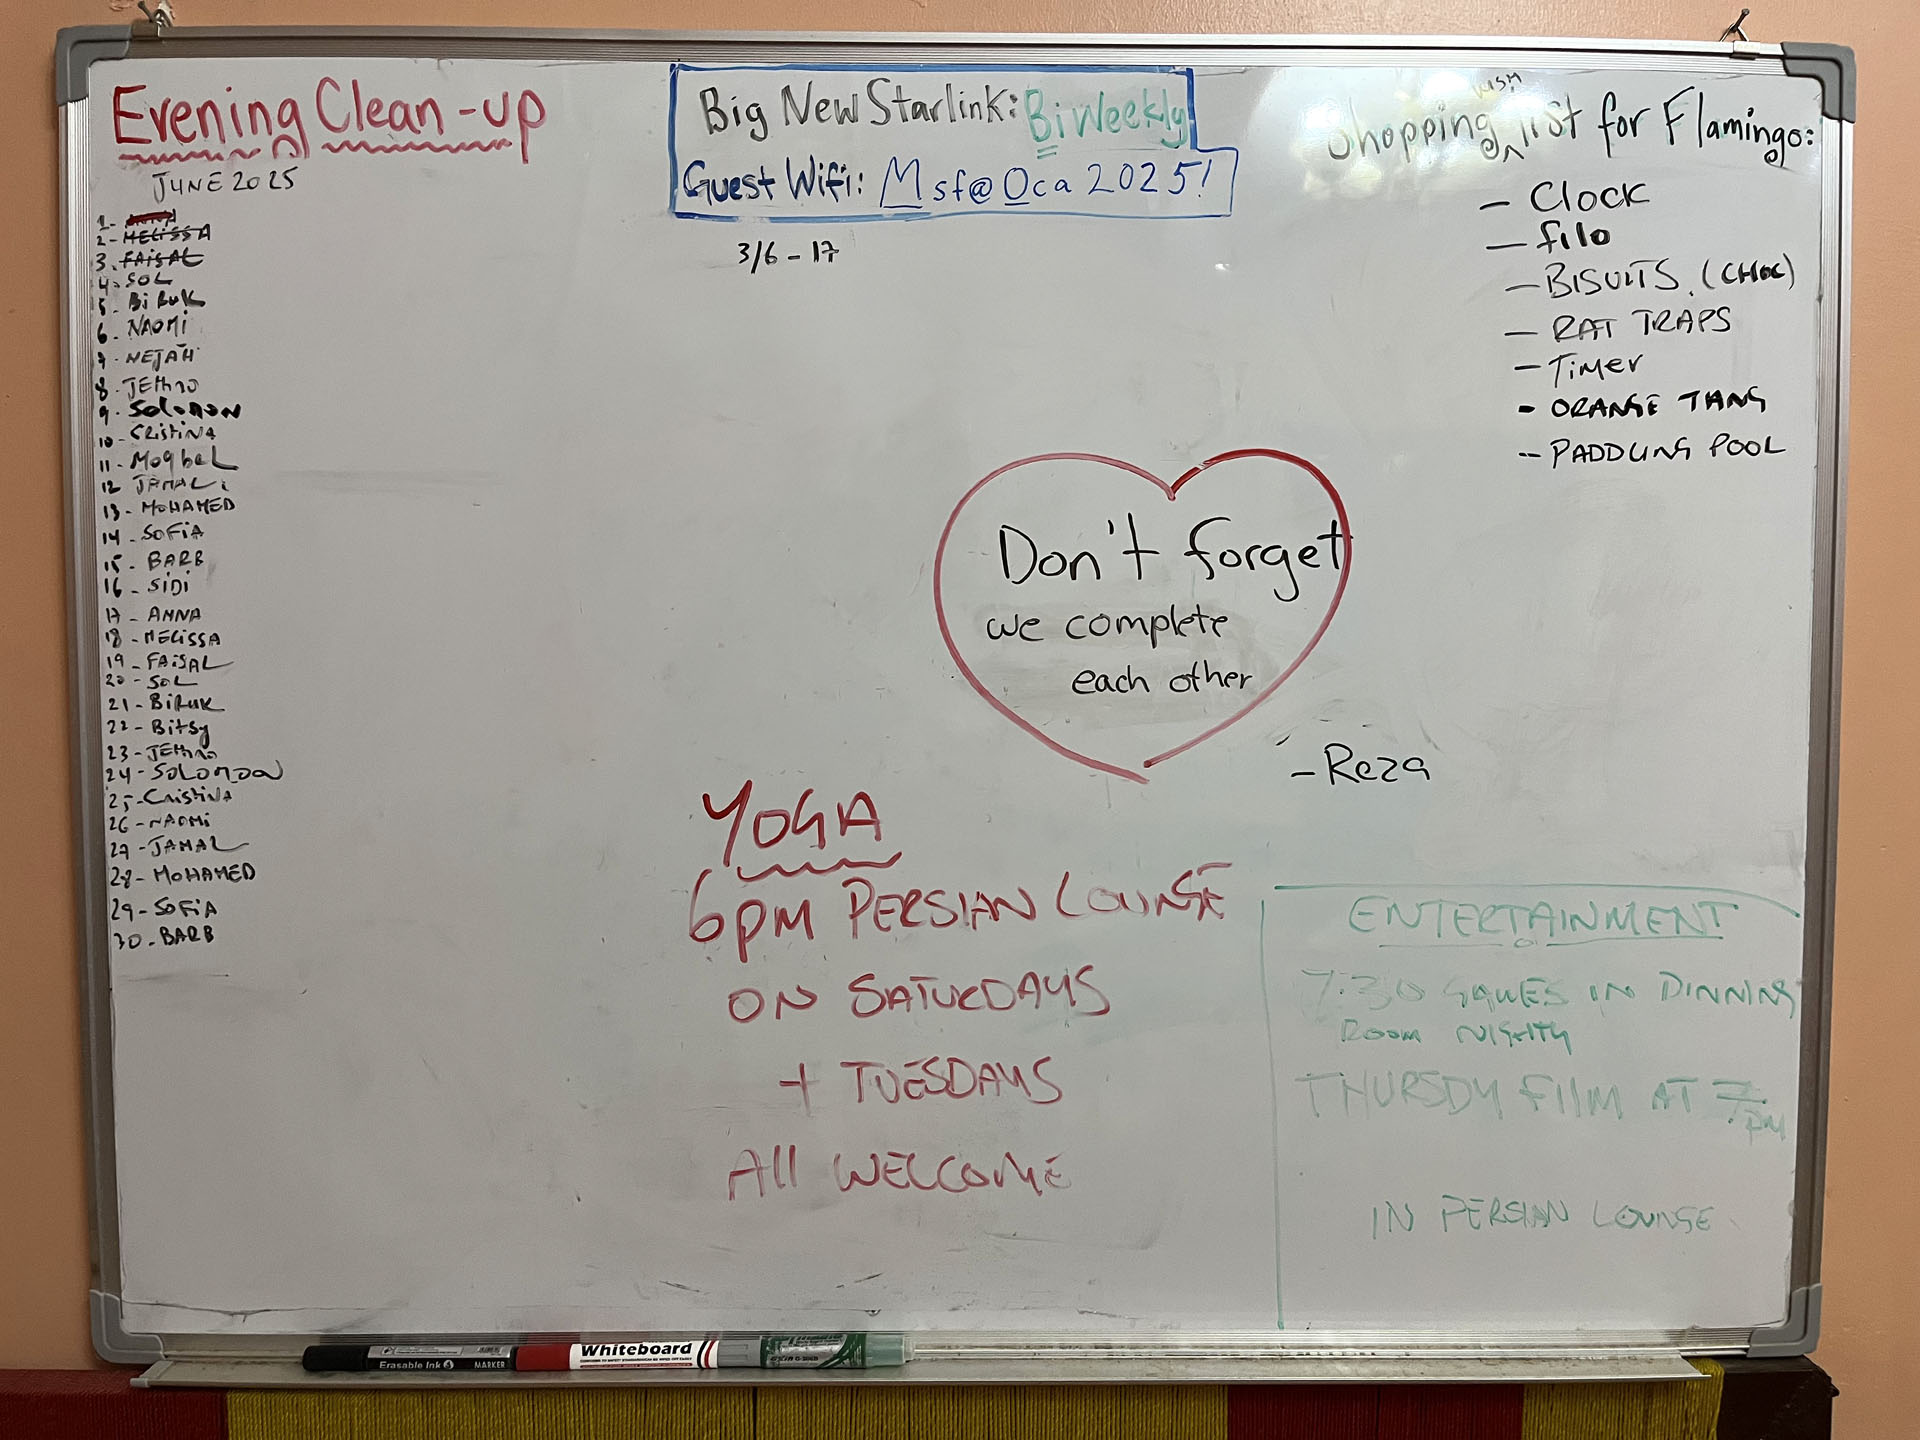 Evening Clean-up
JUNE 2025
1-
2- MELiSSA
3. FAiSAL
4- SOL
5- BiRUK
6- NAOMi
7- NEJAH
8- JEthro
9- SOLOMON
10- CRiStiNA
11- MoqbeL
12 JAMAL
13- MOHAMED
14- SOFiA
15- BARB
16- SiDi
17- ANNA
18- MELiSSA
19- FAiSAL
20- SOL
21- BiRUK
22- Bitsy
23- JEthro
24- SOLOMON
25- CRistiNA
26- NAOMi
27- JAMAL
28- MOHAMED
29- SOFiA
30- BARB
Big New Starlink: BiWeekly
Guest Wifi: Msf@Oca2025!
3/6 - 17
wish
Shopping list for Flamingo:
- Clock
- filo
- BISUITS. (CHOC)
- RAT TRAPS
- Timer
- ORANGE TANG
- PADDLING POOL
Don't forget
we complete
each other
- Reza
YOGA
6PM PERSIAN LOUNGE
ON SATURDAYS
+ TUESDAYS
All WELCOME
ENTERTAINMENT
7:30 GAMES IN DINNING
ROOM NIGHTLY
THURSDY FILM AT 7
PM
IN PERSIAN LOUNGE
Erasable Ink MARKER
Whiteboard